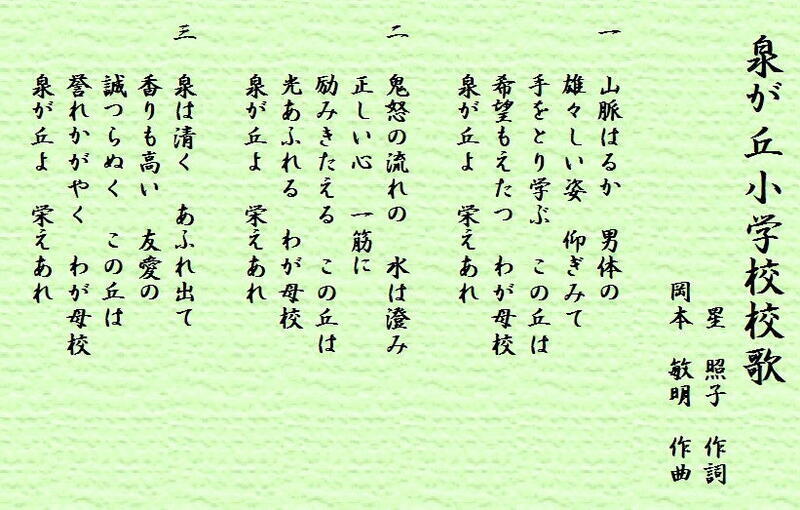 泉が丘小学校校歌
星　照子　作詞
岡本　敏明　作曲
一
山脈はるか　男体の
雄々しい姿　仰ぎみて
手をとり学ぶ　この丘は
希望もえたつ　わが母校
泉が丘よ　栄えあれ
二
鬼怒の流れの　水は澄み
正しい心　一筋に
励みきたえる　この丘は
光あふれる　わが母校
泉が丘よ　栄えあれ
三
泉は清く　あふれ出て
香りも高い　友愛の
誠つらぬく　この丘は
誉れかがやく　わが母校
泉が丘よ　栄えあれ